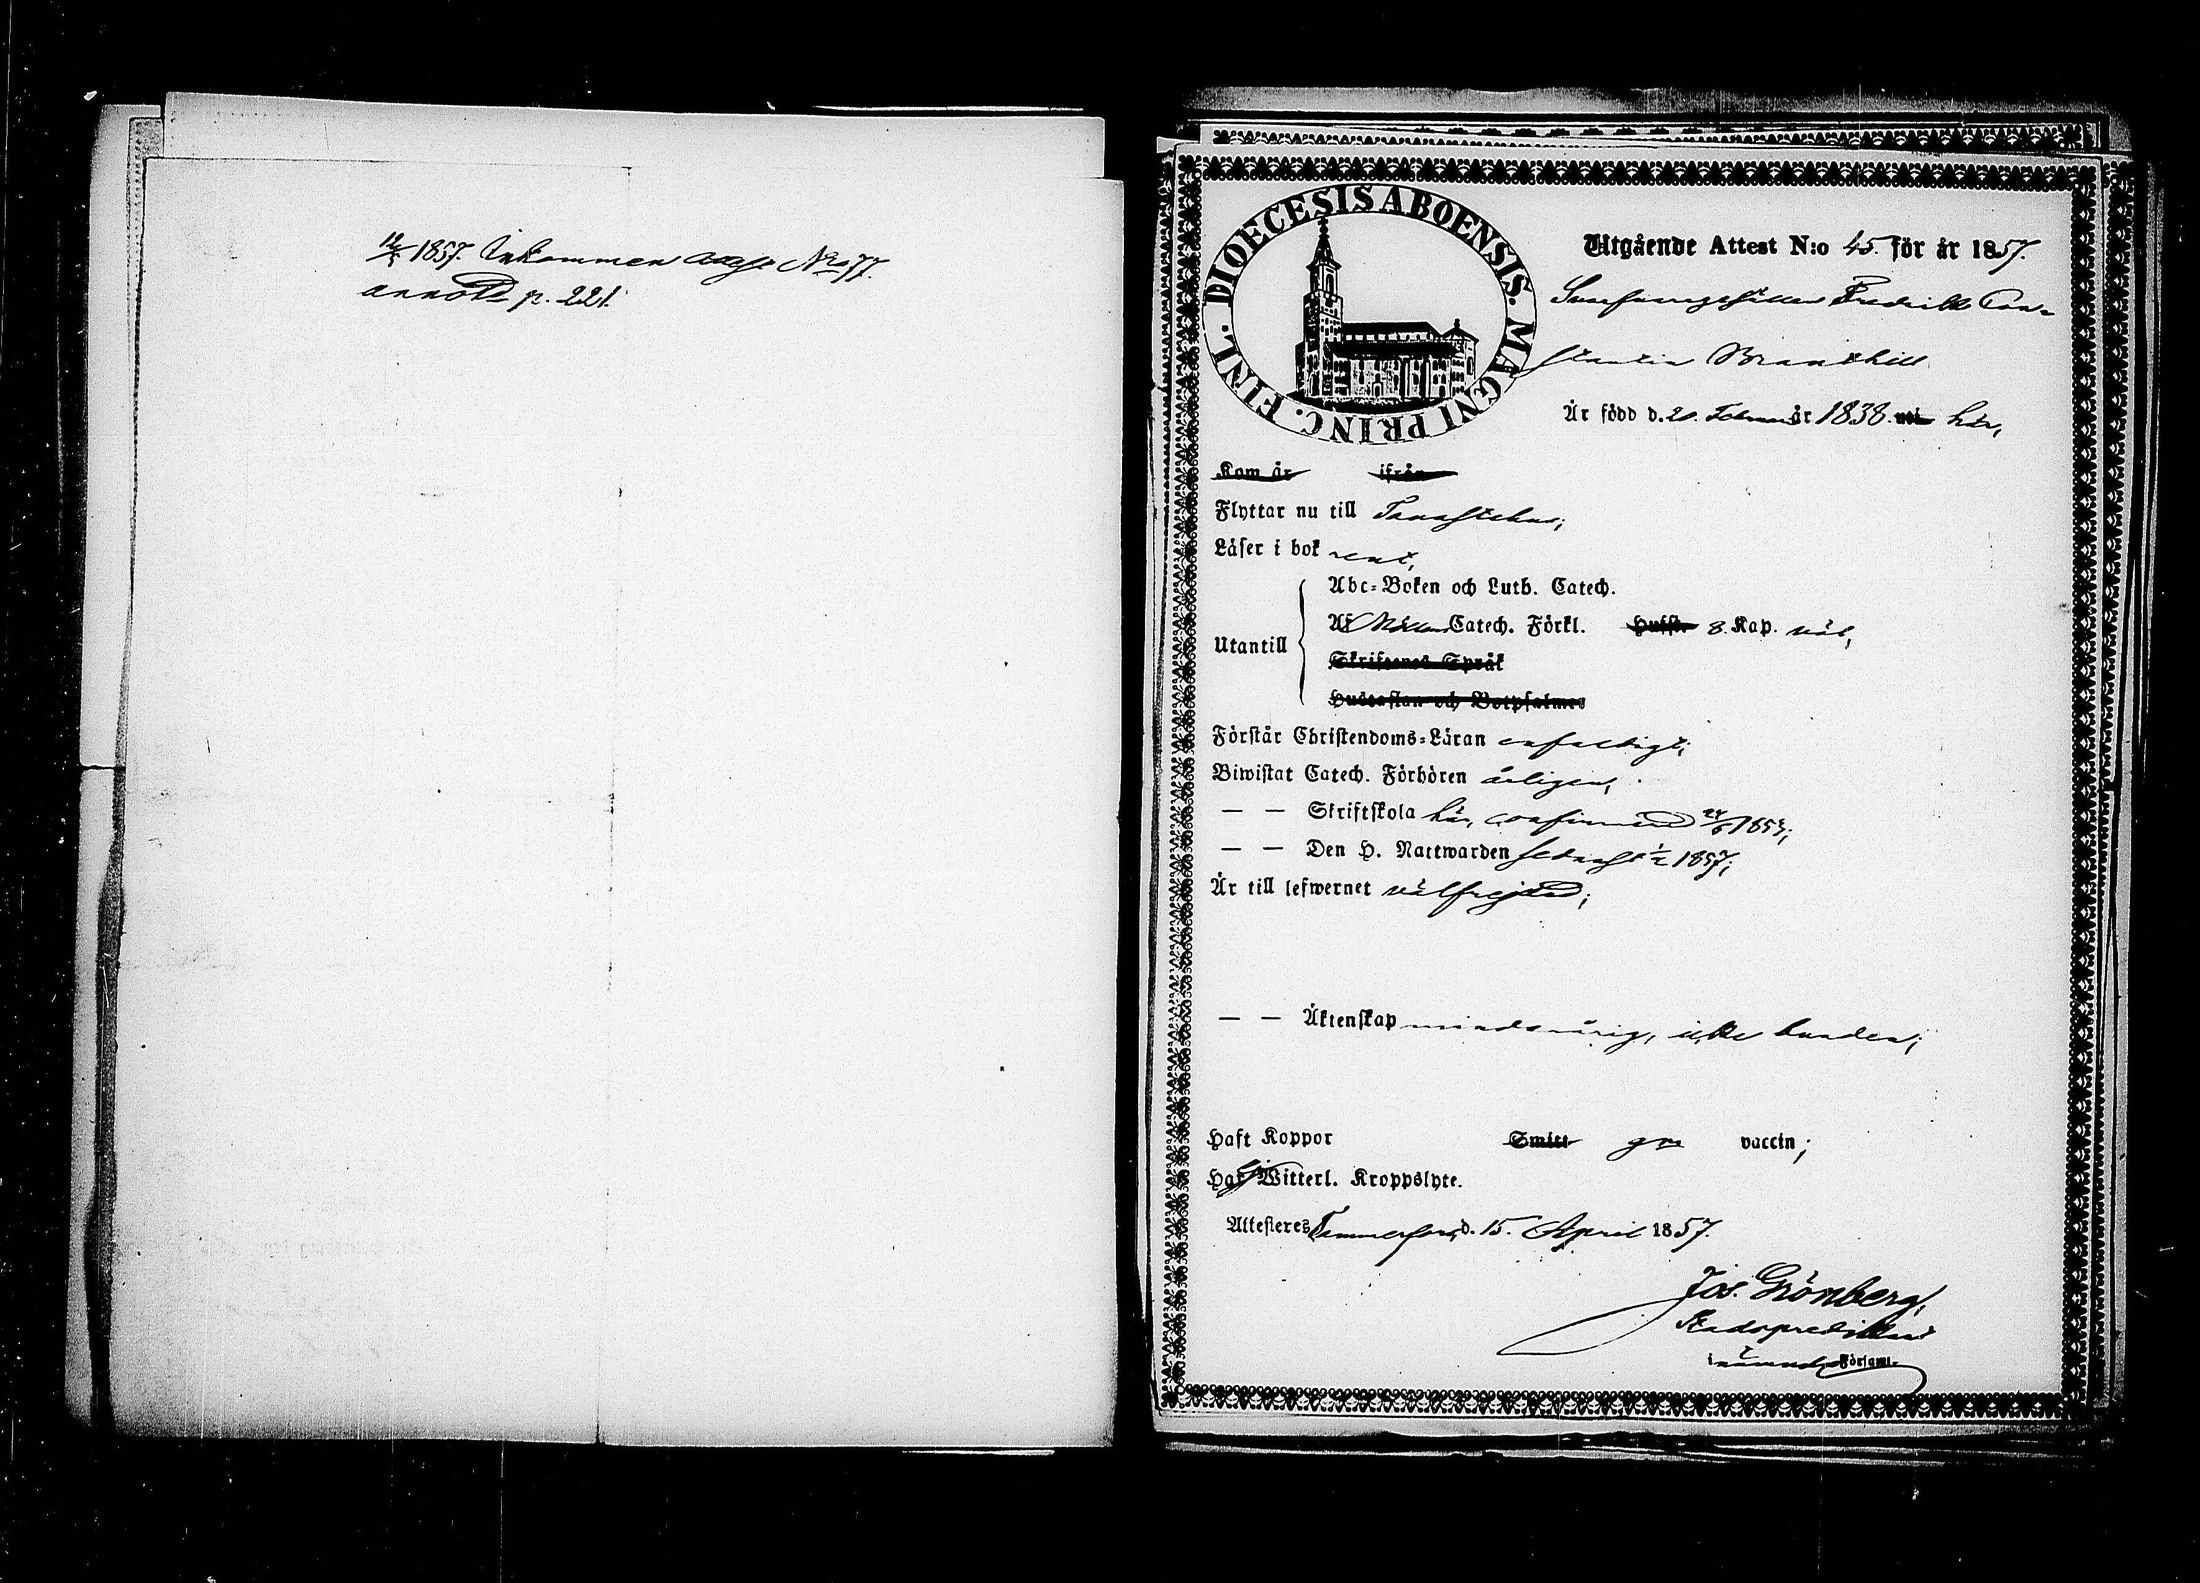 12/5 1857. Inkommen attest N:o 77.
annoterd p. 221.
DIOECESIS ABOENSIS. MAGNI PRINC. FINL.
Utgående Attest N:o 45. för år 1857.
Fredrik Con-
stantin
Är född d. 21. Februari år 1838. uti här,
Kom år ifrån
Flyttar nu till Tavastehus;
Läser i bok rent,
Abc-Boken och Luth. Catech.
Utantill
Af Möllers Catech. Förkl. Hufst. 8. Kap. väl,
Skriftenes Språk
Hustaflan och Botpsalmer
Förstår Christendoms-Läran enfaldigt;
Biwistat Catech. Förhören årligen,
— — Skriftskola här, confirmerad 24/6 1853;
— — Den H. Nattwarden sednast 1/2 1857;
Är till lefwernet välfrejdad;
— — Äktenskap minderårig, icke bunden;
Haft Koppor Smitt gm vaccin;
Har Ej Witterl. Kroppslyte.
Attesteres Tammerfors d. 15. April 1857.
Jos. Grönberg,
Stadspredikant
i nämnde Församl.